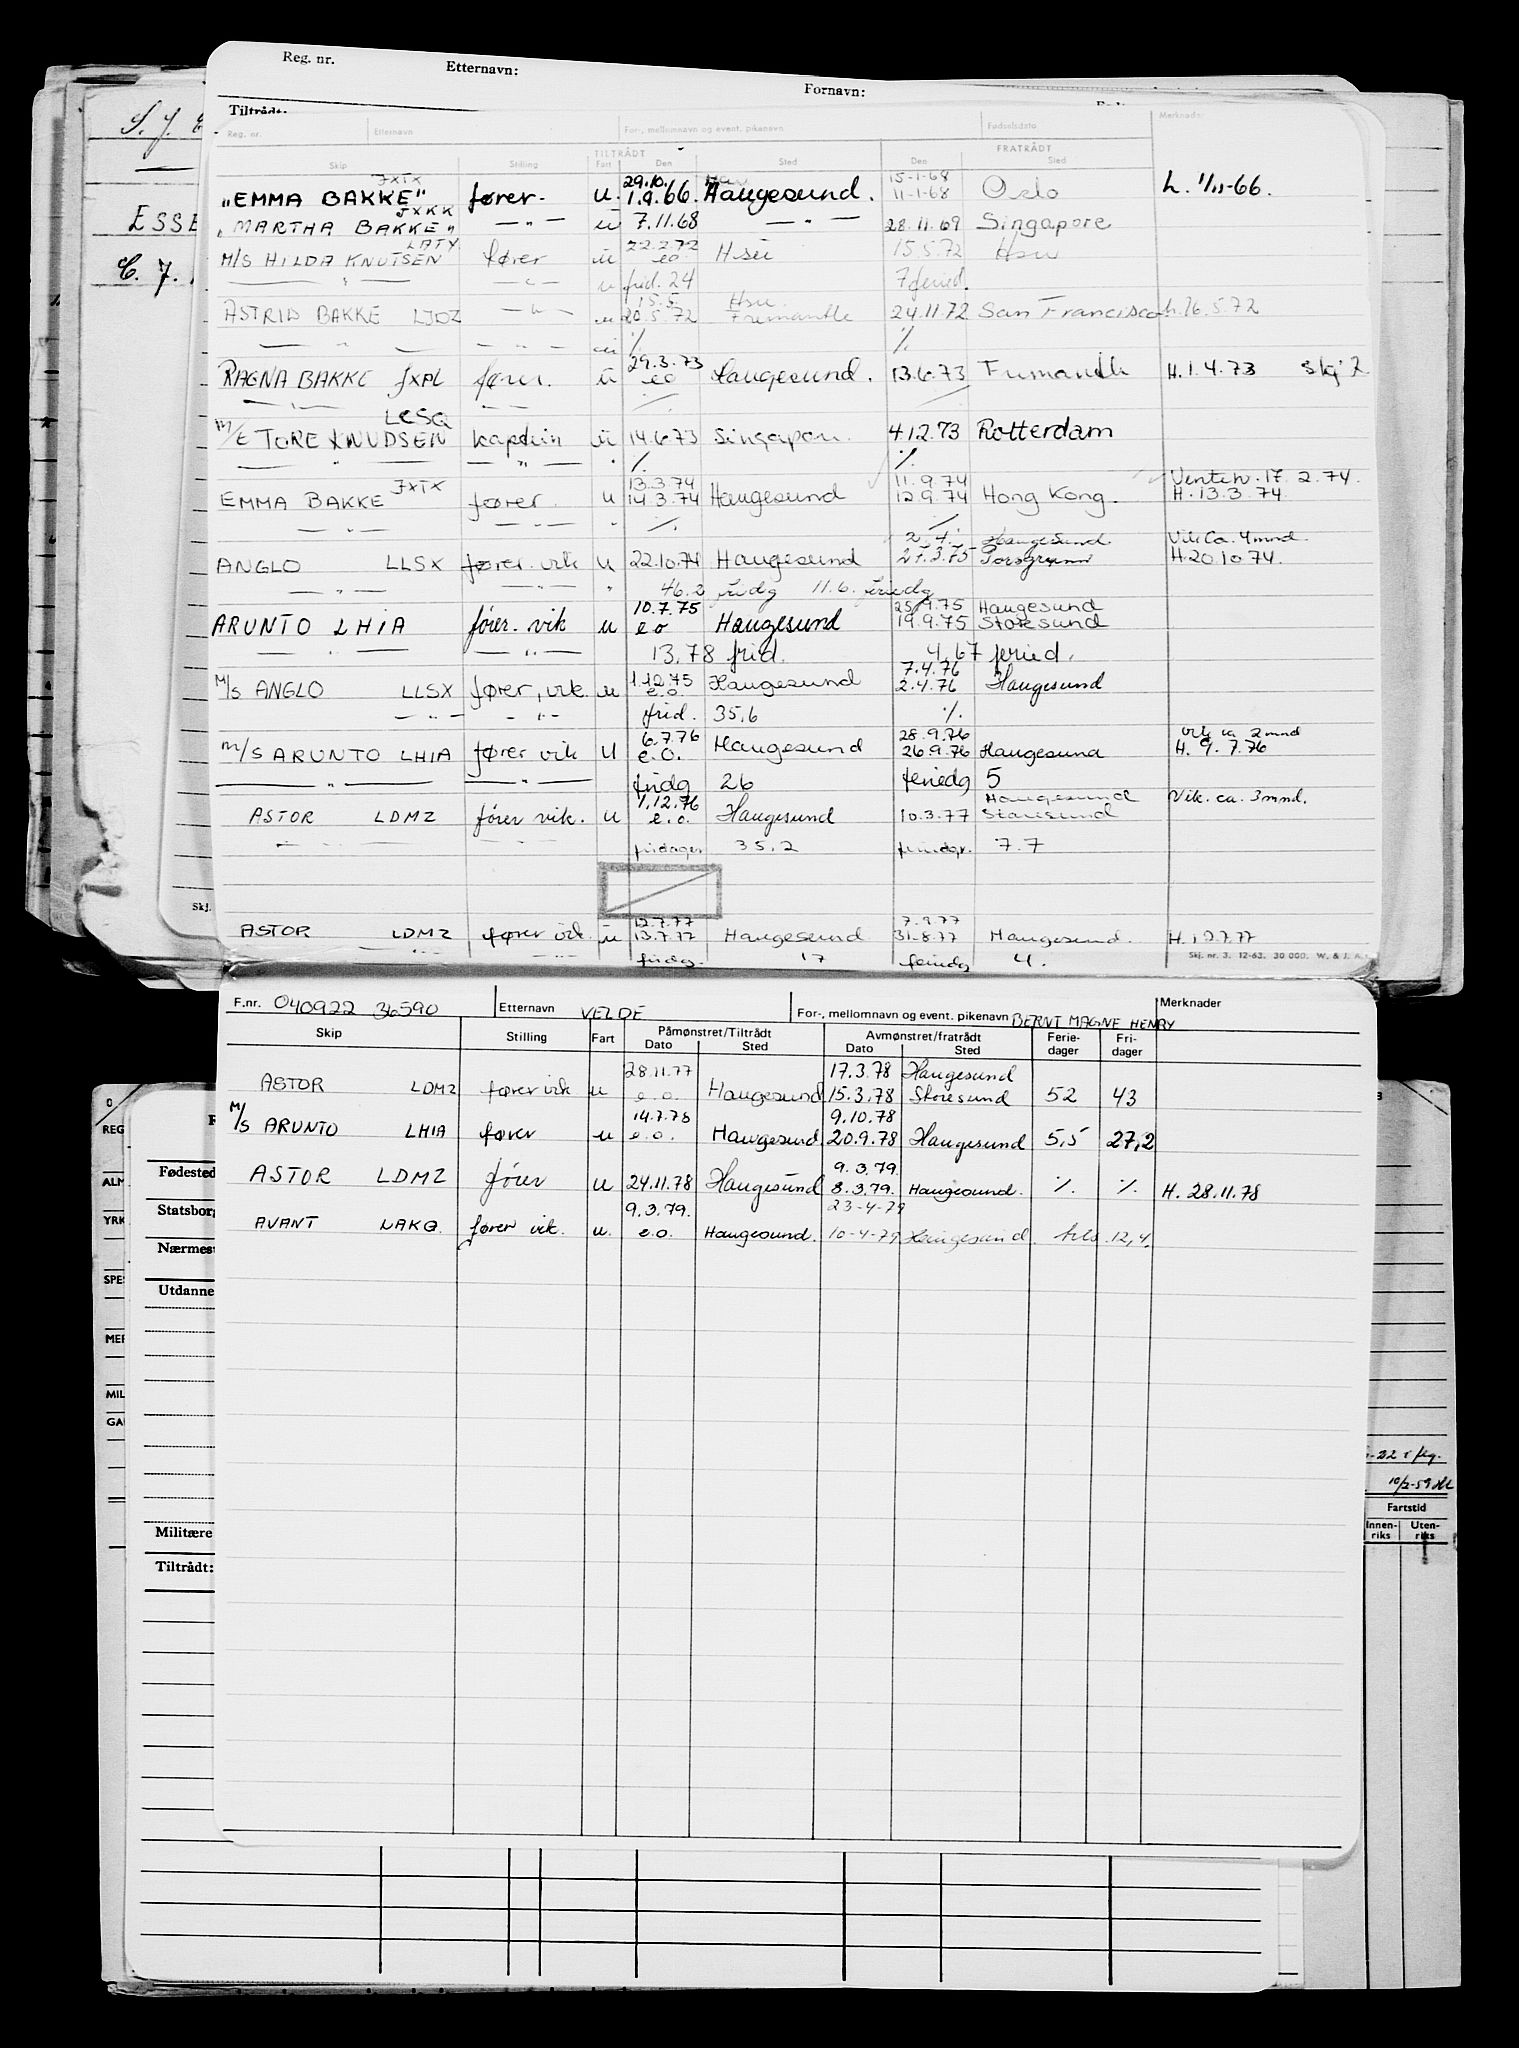 Reg. nr. Etternavn: Fornavn:
Tiltrådt:
Reg. nr. Etternavn For-, mellomnavn og event. pikenavn Fødselsdato Merknader
TILTRÅDT FRATRÅDT
Skip Stilling Fart Den Sted Den Sted
JXTX 29.10. 15-1-68
"EMMA BAKKE" fører. u. 1.9.66. Haugesund. 11-1-68 Oslo h. 1/11-66.
JXKK
"MARTHA BAKKE" —"— u 7.11.68 —"— 28.11.69 Singapore
LATY 22.2.72
M/S HILDA KNUTSEN fører u eo 15.5.72
—"— —"— u frid. 24 7 feried.
15.5.
ASTRID BAKKE LJDZ —"— u 20.5.72 Fremantle 24.11.72 San Francisco h. 16.5.72
—"— —"— u % %
29.3.73
RAGNA BAKKE JXPL fører. u eo Haugesund. 13.6.73 Fremantle H. 1.4.73
—"— —"— % %
LCSQ
M/S TORE KNUDSEN kaptein u 14.6.73 Singapore. 4.12.73 Rotterdam
—"— —"— " % %
JXTX 13.3.74 11.9.74 Ventev. 17.2.74.
EMMA BAKKE fører u 14.3.74 Haugesund 12.9.74 Hong Kong. H. 13.3.74
—"— —"— % %
2.4. Haugesund Vik ca. 4 mnd
ANGLO LLSX fører. vik u 22.10.74 Haugesund 27.3.75 Porsgrunn H. 20.10.74.
—"— —"— " 46.2 fridg 11.6. feriedg
10.7.75 25.9.75 Haugesund
ARUNTO LHIA fører. vik u eo Haugesund 19.9.75 Storesund
—"— —"— 13,78 frid. 4,67 feried.
1.12.75 7.4.76
M/S ANGLO LLSX fører, vik. u e.o. Haugesund 2.4.76 Haugesund
—"— —"— frid. 35,6 %
6.7.76 28.9.76 vik ca 2 mnd
M/S ARUNTO LHIA fører vik U e.o. Haugesund 26.9.76 Haugesund H. 9.7.76
—"— —"— fridg 26 feriedg 5
1.12.76 Haugesund Vik. ca. 3 mnd.
ASTOR LDMZ fører vik. u e.o. Haugesund 10.3.77 Storesund
—"— —"— fridager 35,2 feriedgr. 7.7
12.7.77 7.9.77
ASTOR LDMZ fører vik. u 13.7.77 Haugesund 31.8.77 Haugesund. H. 12.7.77
—"— —"— fridg. 17 feriedg 4.
Skj. nr. 3. 12-63. 30 000. W. & J. A.
S. J.
ESSE
C. 7.
Skj.
F.nr. 040922 36590 Etternavn VELDE For-, mellomnavn og event. pikenavn BERNT MAGNE HENRY Merknader
Skip Stilling Fart Påmønstret/Tiltrådt Avmønstret/fratrådt Ferie-dager Fri-dager
Dato Sted Dato Sted
28.11.77 17.3.78 Haugesund
ASTOR LDMZ fører vik u e.o. Haugesund 15.3.78 Storesund 52 43
14.7.78 9.10.78
M/S ARUNTO LHIA fører u e.o. Haugesund 20.9.78 Haugesund 5,5 27,2
9.3.79.
ASTOR LDMZ fører u 24.11.78 Haugesund 8.3.79. Haugesund. % % H. 28.11.78
9.3.79. 23-4-79
AVANT LAKQ fører vik. u. e.o. Haugesund. 10-4-79 Haugesund. 12,4.
REG
ALM
YRK
SPES
MER
MIL
GA
Fødested
Statsborg
Nærmest
Utdanne
Militære
Tiltrådt:
10/2-59
Fartstid
Innen-riks Uten-riks